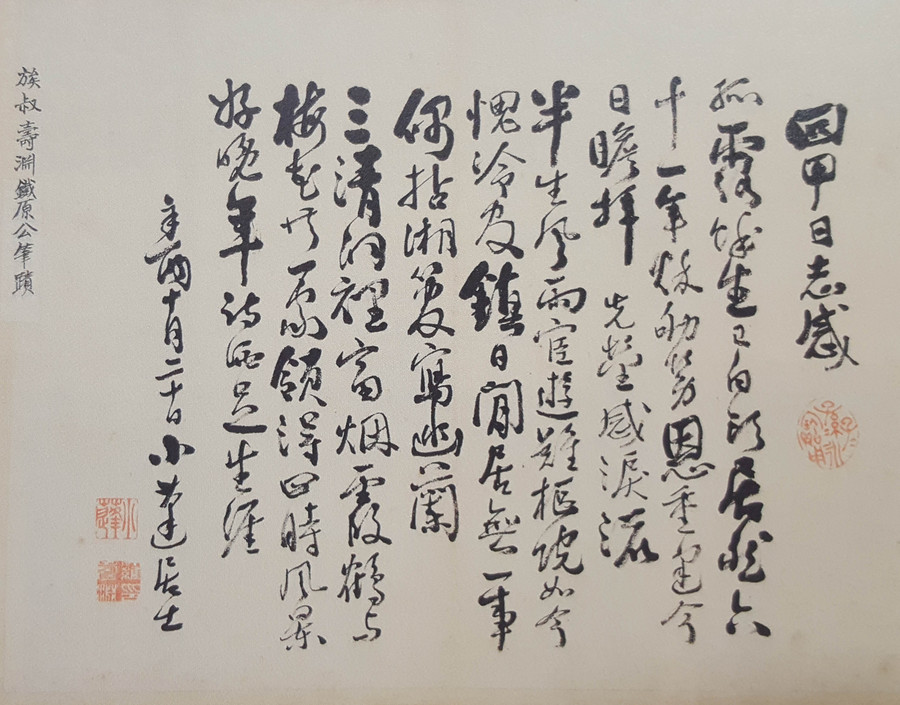 回甲日志感
孤露餘生已白頭居然六
十一年秋劬勞恩重逢今
日瞻拜先塋感淚流
半生風雨宦遊難樞院如今
愧冷官鎮日閒居無一事
偶拈湘管寫幽蘭
三清洞裡富烟霞鶴与
梅花共一家領得四時風景
好晚年詩酒足生涯
辛酉十月二十日小蓬居士
小蓬
族叔壽淵鐵原公筆蹟